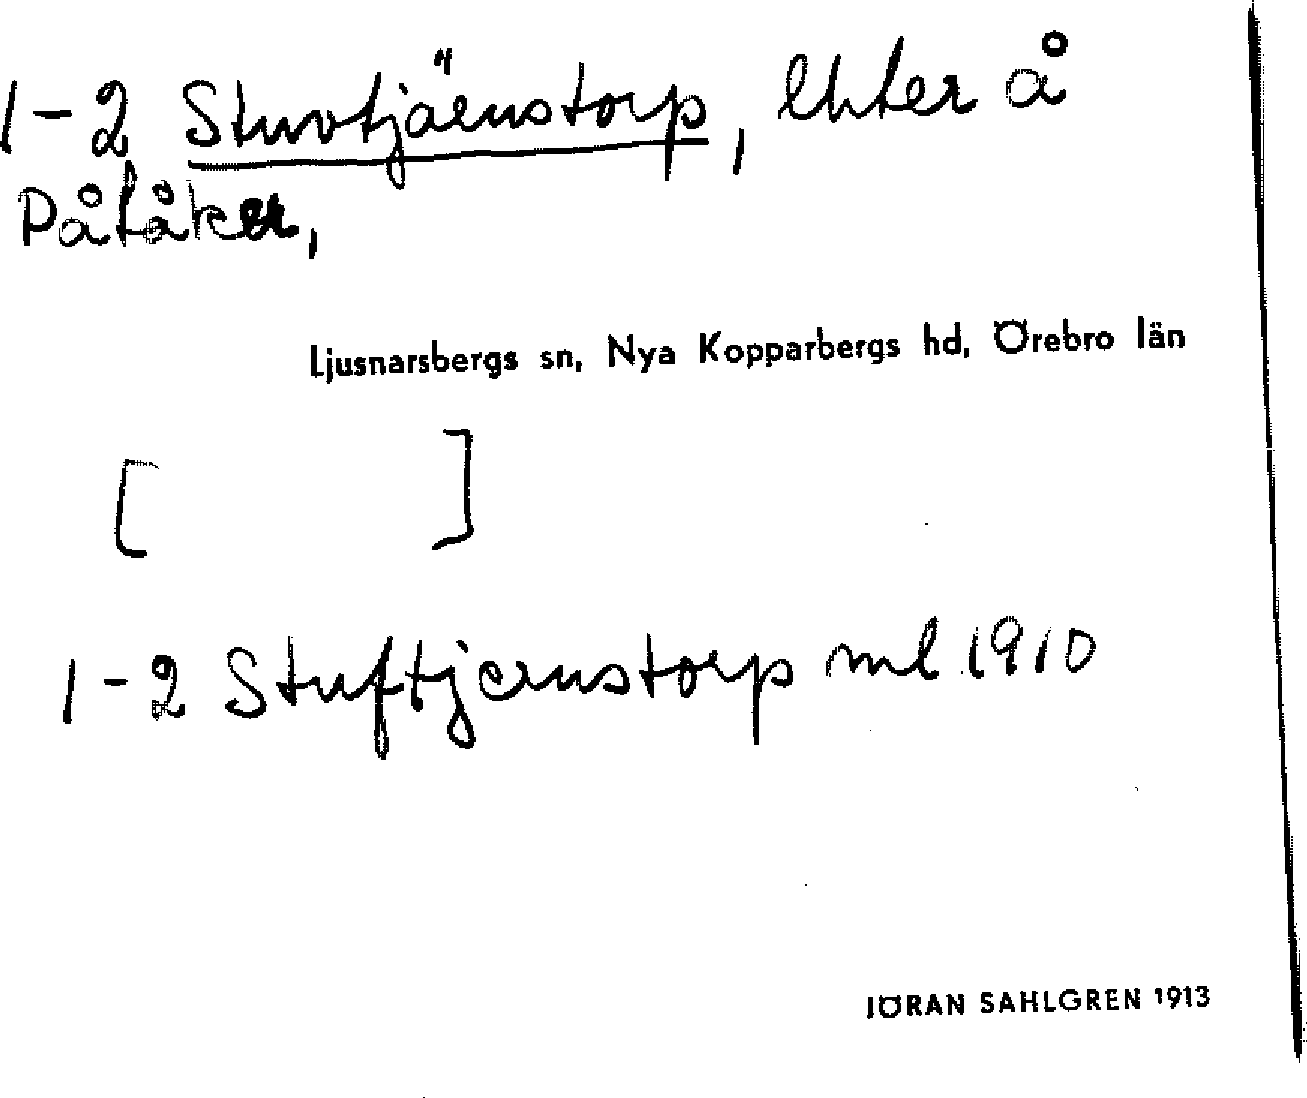 1-2 Stuvtjärnstorp, lhter å
Påtåker,
Ljusnarsbergs sn, Nya Kopparbergs hd, Örebro län
[ ]
1-2 Stuftjernstorp ml 1910
JÖRAN SAHLGREN 1913